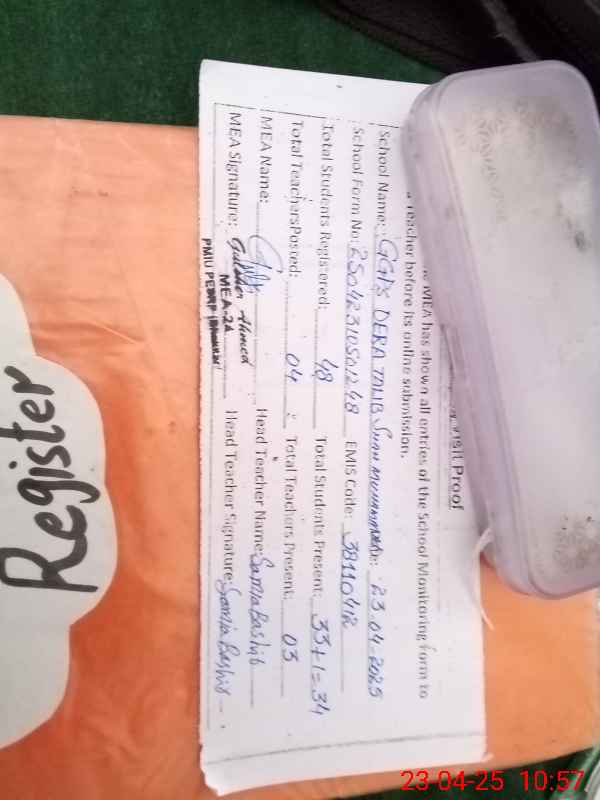 Visit Proof
MEA has shown all entries of the School Monitoring form to
Teacher before its online submission.
School Name: GGPS DERA TALIB Shah Muhammad Date: 23-04-2025
School Form No: 25042310501248 EMIS Code: 38110412
Total Students Registered: 48 Total Students Present: 33+1=34
Total Teachers Posted: 04 Total Teachers Present: 03
MEA Name: Head Teacher Name: Samia Bashir
MEA Signature: Gulsher Ahmed Head Teacher Signature: Samia Bashir
MEA-24
PMIU PESRP
Register
23-04-25 10:57